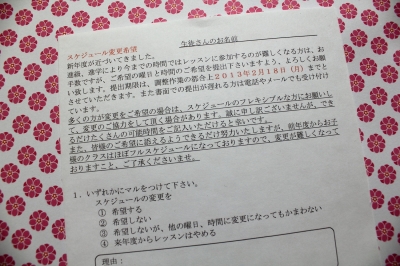 生徒さんのお名前
スケジュール変更希望
新年度が近づいてきました。
進級、進学により今までの時間ではレッスンに参加するのが難しくなる方は、お
手数ですが、ご希望の曜日と時間のご希望を提出下さいますよう、よろしくお願
い致します。提出期限は、調整作業の都合上2013年2月18日（月）までと
させていただきます。また書面での提出が遅れる方は電話やメールでも受け付け
ています。
多くの方が変更をご希望の場合は、スケジュールのフレキシブルな方にお願いし
て、変更のご協力をして頂く場合があります。誠に申し訳ございませんが、でき
るだけたくさんの可能時間をご記入いただけると幸いです。
また、皆様のご希望に添えるようできるだけ努力いたしますが、前年度からお子
様のクラスはほぼフルスケジュールになっておりますので、変更が難しくなって
おりますこと、ご了承くださいませ。
1．いずれかにマルをつけて下さい。
スケジュールの変更を
① 希望する
② 希望しない
③ 希望しないが、他の曜日、時間に変更になってもかまわない
④ 来年度からレッスンはやめる
理由：